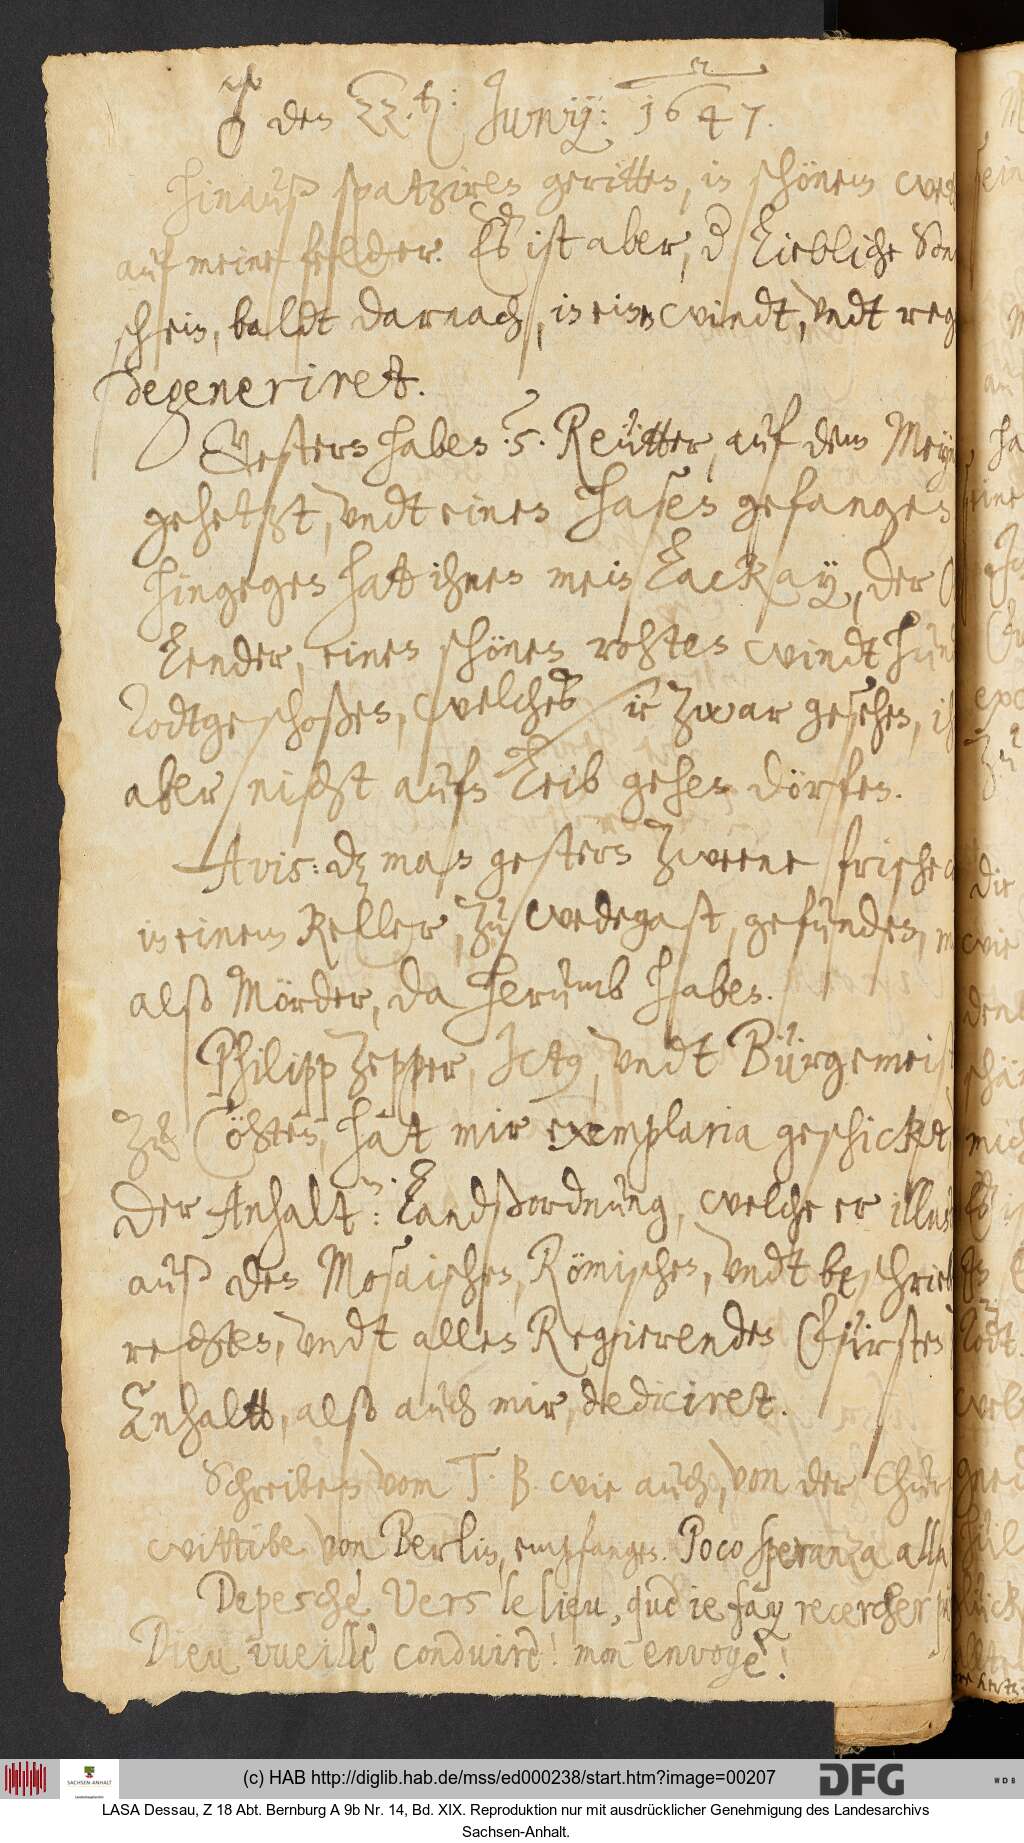 ♂ den 22.ten: Junij: 1647.
hinauß spatziren geritten, in schönem
auf meine felder. Es ist aber, der Liebliche Son
schein, baldt darnach, in einen windt, vndt reg
degeneriret.
Gestern haben .5. Reütter, auf dem
gehetzt, vndt einen hasen gefangen
hingegen hat ihnen mein Lackay, der
Lender, einen schönen rohten windthun
Todtgeschoßen, welches sie zwar gesehen, ih
aber nicht aufn Leib gehen dörfen.
Avis: daz man gestern zweene frische
in einem Keller, zu Wedegast, gefunden,
alß Mörder, da herumb haben.
Philipp Zepper, JCtus, vndt Bürgemeis
zu Cöhten, hat mir exemplaria geschickt,
der Anhalt.n: Landßordnung, welche er illus
auß den Mosaischen, Römischen, vndt beschrieb
rechten, vndt allen Regierenden Fürsten
Anhaltt, alß auch mir, dediciret.
Schreiben vom T. B. wie auch, von der Chur
wittibe von Berlin, empfangen. Poco speranza all
Depesché vers le lieu, que je fay recercher
Dieu vueille conduire! mon envoyè!
(c) HAB http://diglib.hab.de/mss/ed000238/start.htm?image=00207
SACHSEN-ANHALT
DFG
WDB
LASA Dessau, Z 18 Abt. Bernburg A 9b Nr. 14, Bd. XIX. Reproduktion nur mit ausdrücklicher Genehmigung des Landesarchivs
Sachsen-Anhalt.